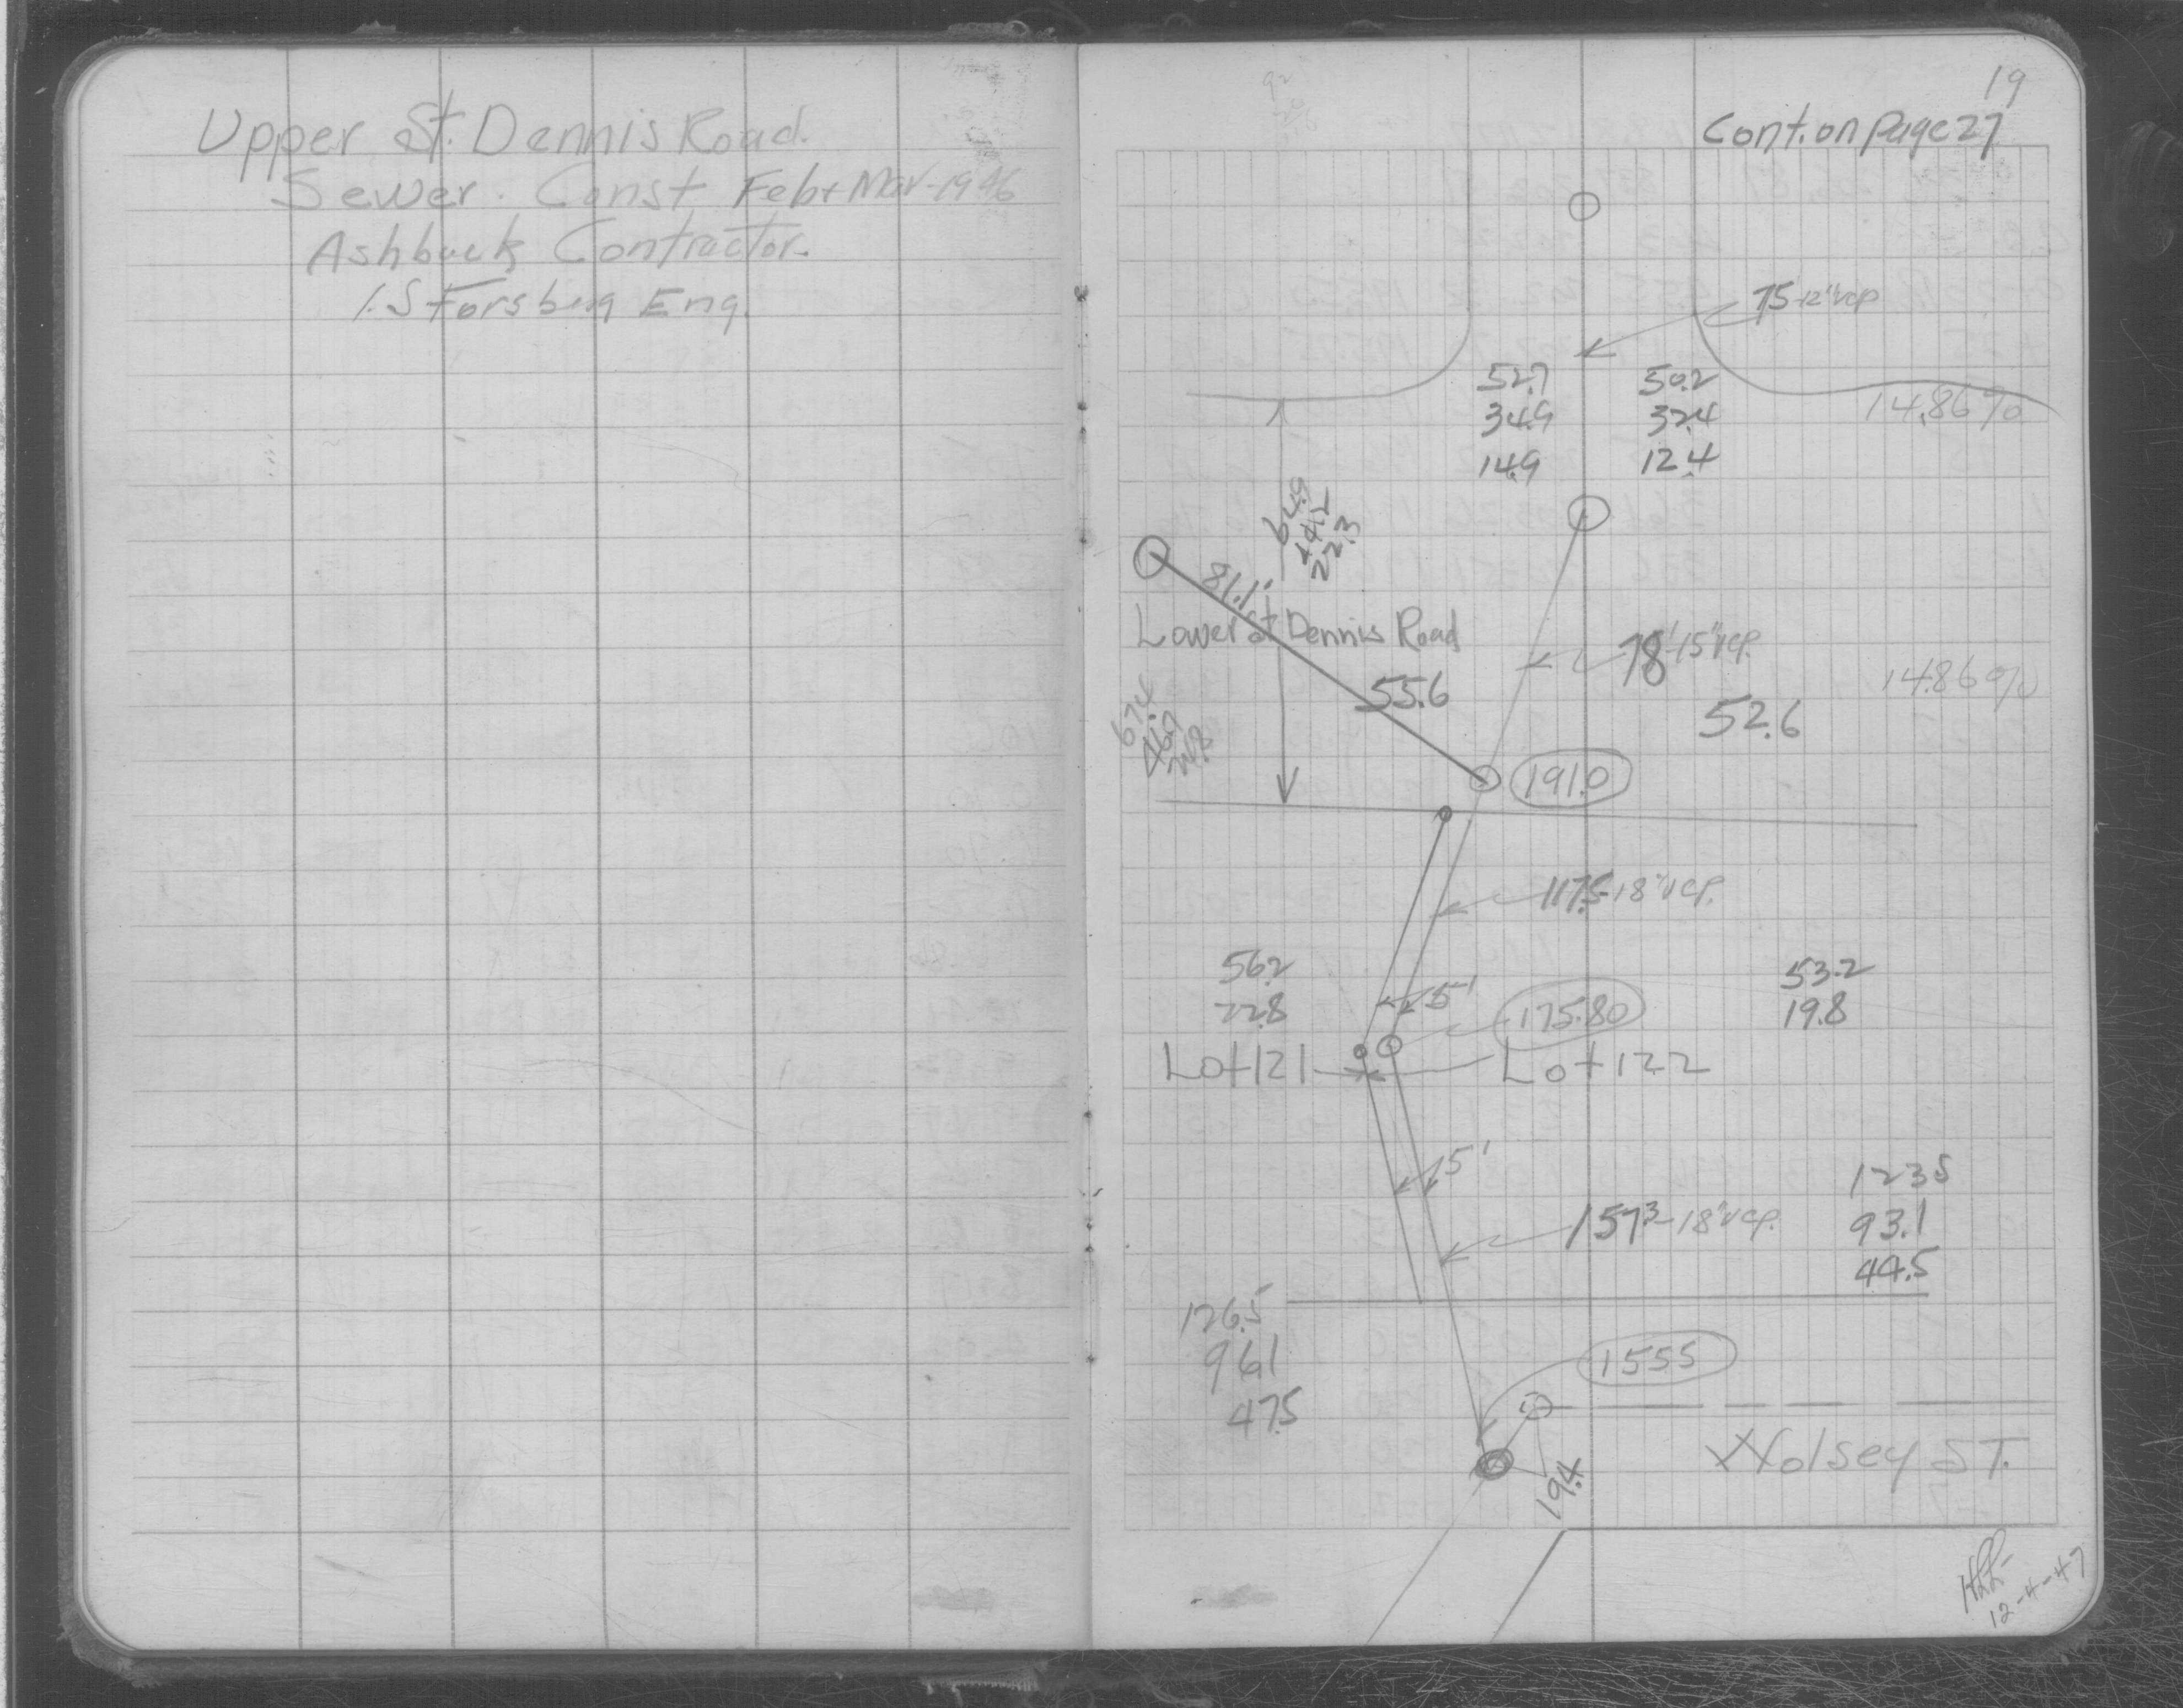 Upper St. Dennis Road.
Sewer. Const Feb + Mar - 1946
Contractor.
Eng.
19
Cont. on Page 27
75-12"vcp
52.7 50.2
34.9 32.4
14.9 12.4
14.86%
64.9
44.2
22.3
81.1'
Lower St Dennis Road
78'-15"vcp.
55.6
14.86%
52.6
67.4
46.7
24.8
191.0
117.5-18"vcp.
56.2 53.2
22.8 19.8
5'
175.80
Lot 121 Lot 122
5'
157.3-18"vcp.
123.5
93.1
44.5
126.5
96.1
47.5
155.5
Wolsey ST.
19.4
12-4-47